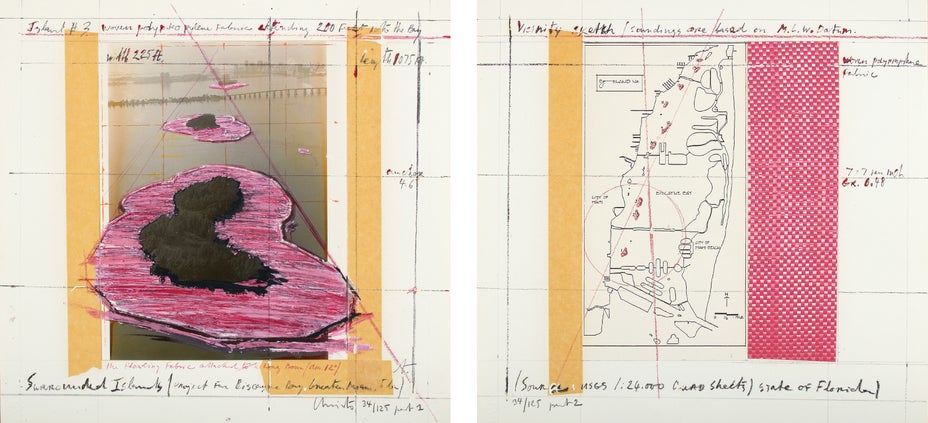 Island # 3 woven polypropelene fabric extending 200 Feet into the Bay
width 225 Ft.
length 1075 Ft.
4.6
the Floating Fabric attached to
Surrounded Islands (project for Biscayne Bay, Greater Miami, Fla)
Christo 34/125 part 1
Vicinity sketch / soundings are based on M.L.W. Datum.
woven polypropylene
fabric
BISCAYNE BAY
CITY OF
MIAMI
CITY OF
MIAMI BEACH
N
(Source: USGS 1:24.000 QUAD sheets) State of Florida)
34/125 part 2